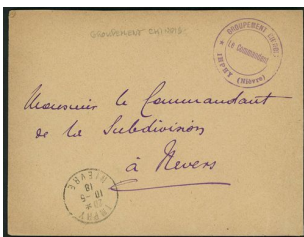 GROUPEMENT CHINOIS
GROUPEMENT CHINOIS
Le Commandant
IMPHY (Nièvre)
Monsieur le Commandant
de la Subdivision
à Nevers
IMPHY
10-5
18
NIEVRE